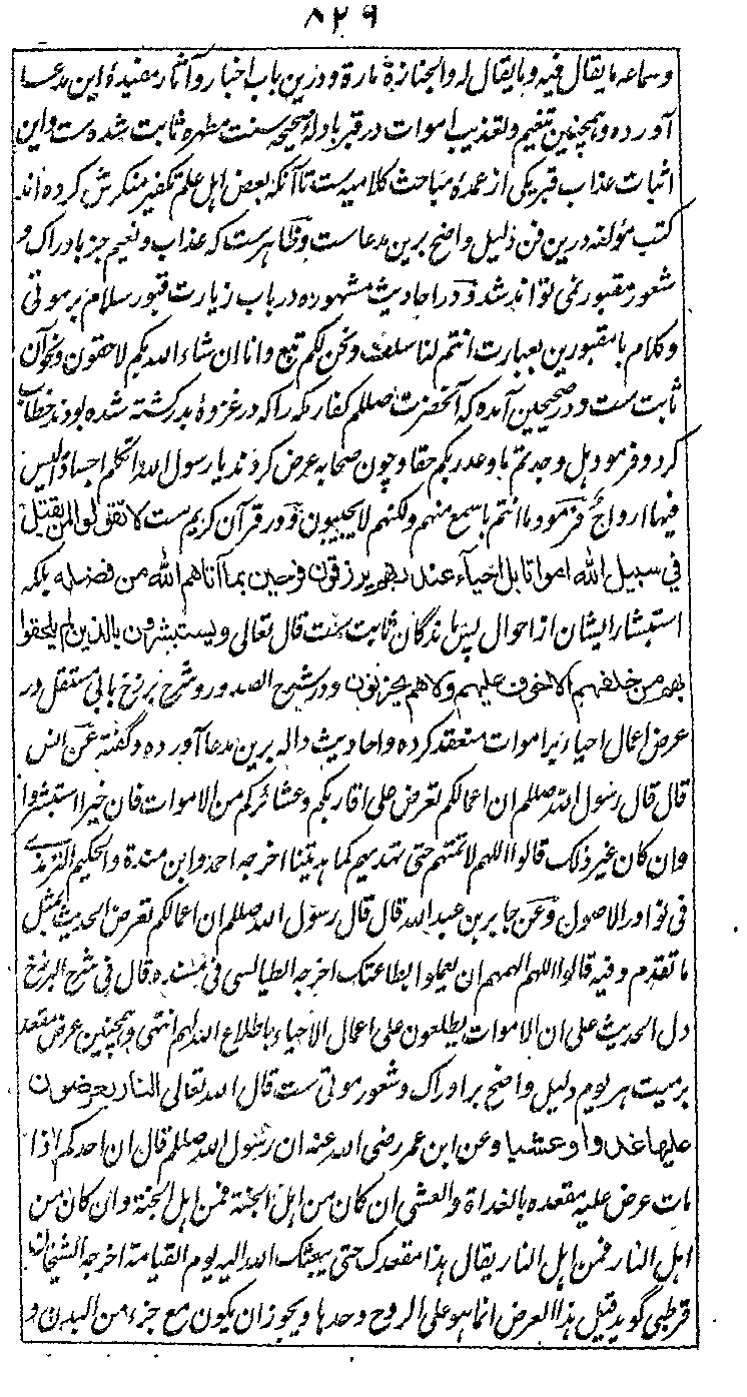 ۸۲۹
وسماعه ما یقال فیه وما یقال له والجنازة مارة و درین باب اخبار و آثار مفیدهٔ این مدعا
آورده و همچنین تنعیم و تعذیب اموات در قبر بادلهٔ صحیحه سنت مطهره ثابت شده ست و این
اثبات عذاب قبر یکی از عمدهٔ مباحث کلامیه ست تا آنکه بعض اهل علم تکفیر منکرش کرده اند
کتب مؤلفه درین فن دلیل واضح برین مدعاست و ظاهر ست که عذاب و نعیم جز بادراک و
شعور مقبور نمی تواند شد و در احادیث مشهوره در باب زیارت قبور سلام بر موتی
و کلام با مقبورین بعبارت انتم لنا سلف و نحن لکم تبع و انا ان شاء الله بکم لاحقون و نحو آن
ثابت ست و در صحیحین آمده که آنحضرت صللم کفار مکه را که در غزوهٔ بدر کشته شده بودند خطاب
کرد و فرمود هل وجدتم ما وعد ربکم حقا و چون صحابه عرض کردند یا رسول الله اتکلم اجسادا لیس
فیها ارواح فرمود ما انتم باسمع منهم ولکنهم لا یجیبون و در قرآن کریم ست لا تقولوا لمن یقتل
فی سبیل الله اموات بل احیاء عند ربهم یرزقون فرحین بما آتاهم الله من فضله بلکه
استبشار ایشان از احوال پس ماندگان ثابت ست قال تعالی و یستبشرون بالذین لم یلحقوا
بهم من خلفهم الا خوف علیهم ولا هم یحزنون و در شرح الصدور و شرح برزخ بابی مستقل در
عرض اعمال احیا بر اموات منعقد کرده و احادیث داله برین مدعا آورده و گفته عن انس
قال قال رسول الله صللم ان اعمالکم تعرض علی اقاربکم و عشائرکم من الاموات فان خیرا استبشروا
وان کان غیر ذلک قالوا اللهم لا تمتهم حتی تهدیهم کما هدیتنا اخرجه احمد وابن مندة والحکیم الترمذی
فی نوادر الاصول و عن جابر بن عبدالله قال قال رسول الله صللم ان اعمالکم تعرض الحدیث بمثل
ما تقدم و فیه قالوا اللهم الهمهم ان یعملوا بطاعتک اخرجه الطیالسی فی مسنده قال فی شرح البرزخ
دل الحدیث علی ان الاموات یطلعون علی اعمال الاحیاء باطلاع الله لهم انتهی و همچنین عرض مقعد
بر میت هر یوم دلیل واضح بر ادراک و شعور موتی ست قال الله تعالی النار یعرضون
علیها غدوا و عشیا و عن ابن عمر رضی الله عنه ان رسول الله صللم قال ان احدکم اذا
مات عرض علیه مقعده بالغداة والعشی ان کان من اهل الجنة فمن اهل الجنة وان کان من
اهل النار فمن اهل النار یقال هذا مقعدک حتی یبعثک الله الیه یوم القیامة اخرجه الشیخان
قرطبی گوید قیل هذا العرض انما هو علی الروح وحدها ویجوز ان یکون مع جزء من البدن و